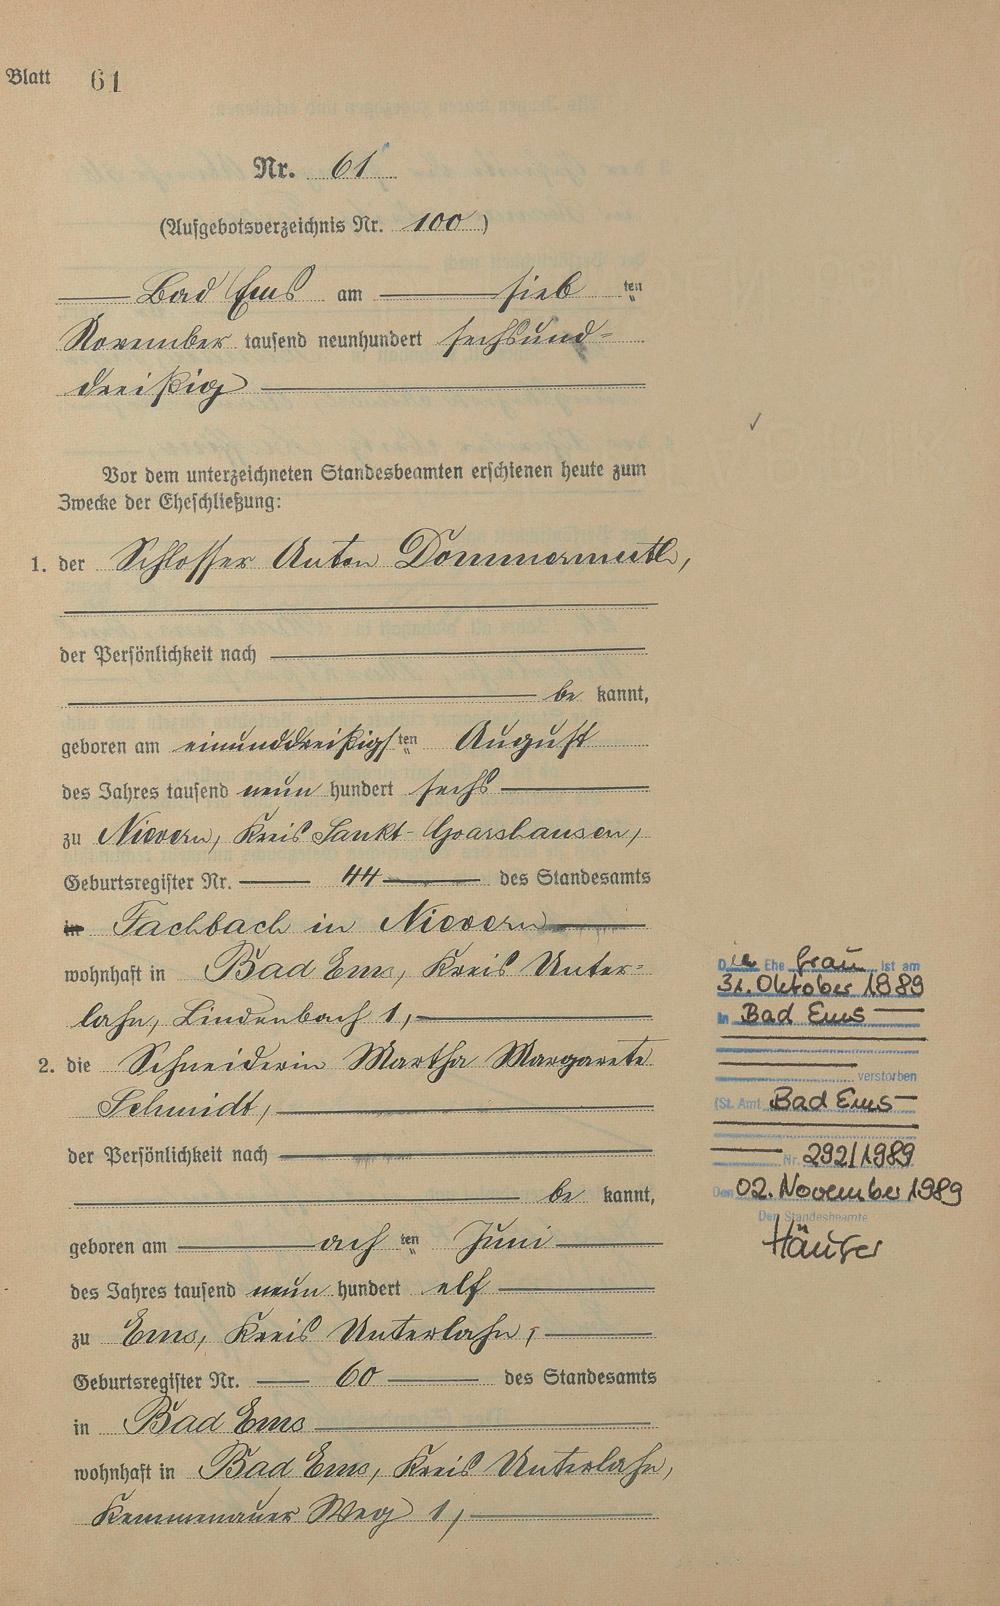 Blatt 61
Nr. 61
(Aufgebotsverzeichnis Nr. 100)
Bad Ems am sieb ten
November tausend neunhundert sechsund-
dreißig
Vor dem unterzeichneten Standesbeamten erschienen heute zum
Zwecke der Eheschließung:
1. der Schlosser Anton Dommermuth,
der Persönlichkeit nach
be kannt,
geboren am einunddreißigs ten August
des Jahres tausend neun hundert sechs
zu Nievern, Kreis Sankt-Goarshausen,
Geburtsregister Nr. 44 des Standesamts
in Fachbach in Nievern
wohnhaft in Bad Ems, Kreis Unter-
lahn, Lindenbach 1,
2. die Schneiderin Martha Margarete
Schmidt,
der Persönlichkeit nach
be kannt,
geboren am ach ten Juni
des Jahres tausend neun hundert elf
zu Ems, Kreis Unterlahn,
Geburtsregister Nr. 60 des Standesamts
in Bad Ems
wohnhaft in Bad Ems, Kreis Unterlahn,
Kemmenauer Weg 1,
Die Ehefrau ist am
31. Oktober 1989
in Bad Ems
verstorben
(St. Amt Bad Ems
Nr. 292/1989
Den 02. November 1989
Der Standesbeamte